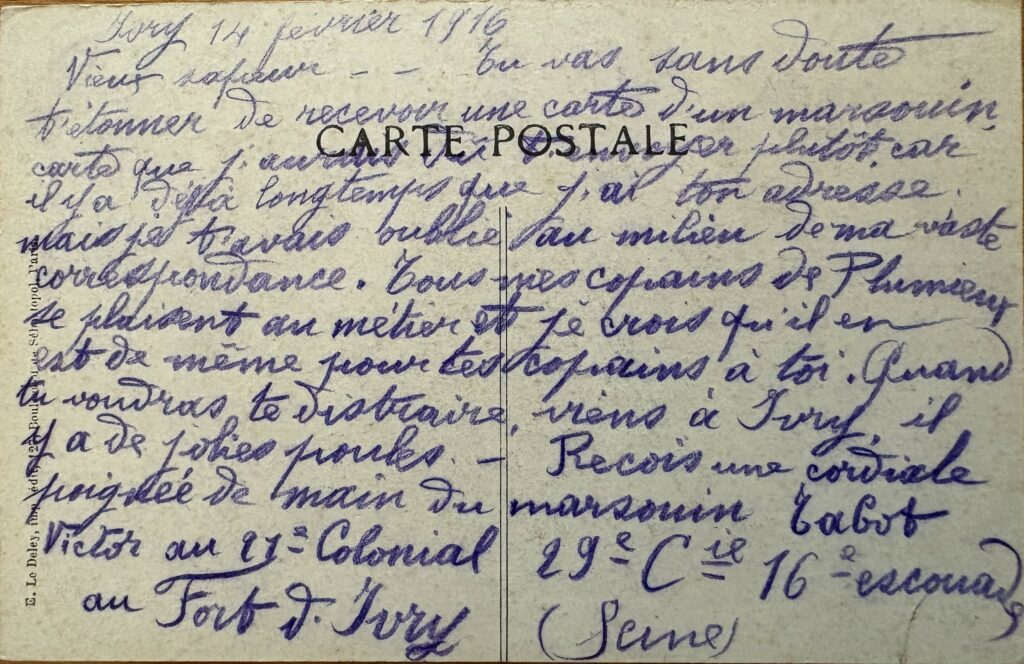 Ivry 14 février 1916
Vieux sapeur - - Tu vas sans doute
t'étonner de recevoir une carte d'un marsouin,
CARTE POSTALE
carte que j'aurais plutôt, car
il y a déjà longtemps que j'ai ton adresse.
mais je t'avais oublié au milieu de ma vaste
correspondance. Tous mes copains de Plumieux
se plaisent au métier et je crois qu'il en
est de même pour tes copains à toi. Quand
tu voudras te distraire, viens à Ivry, il
y a de jolies poules. - Recois une cordiale
poignée de main du marsouin Tabot
Victor au 21e Colonial
29e Cie 16e escouade
au Fort d'Ivry (Seine)
E. Le Deley, imp.-édit., 127, Boul. de Sébastopol, Paris